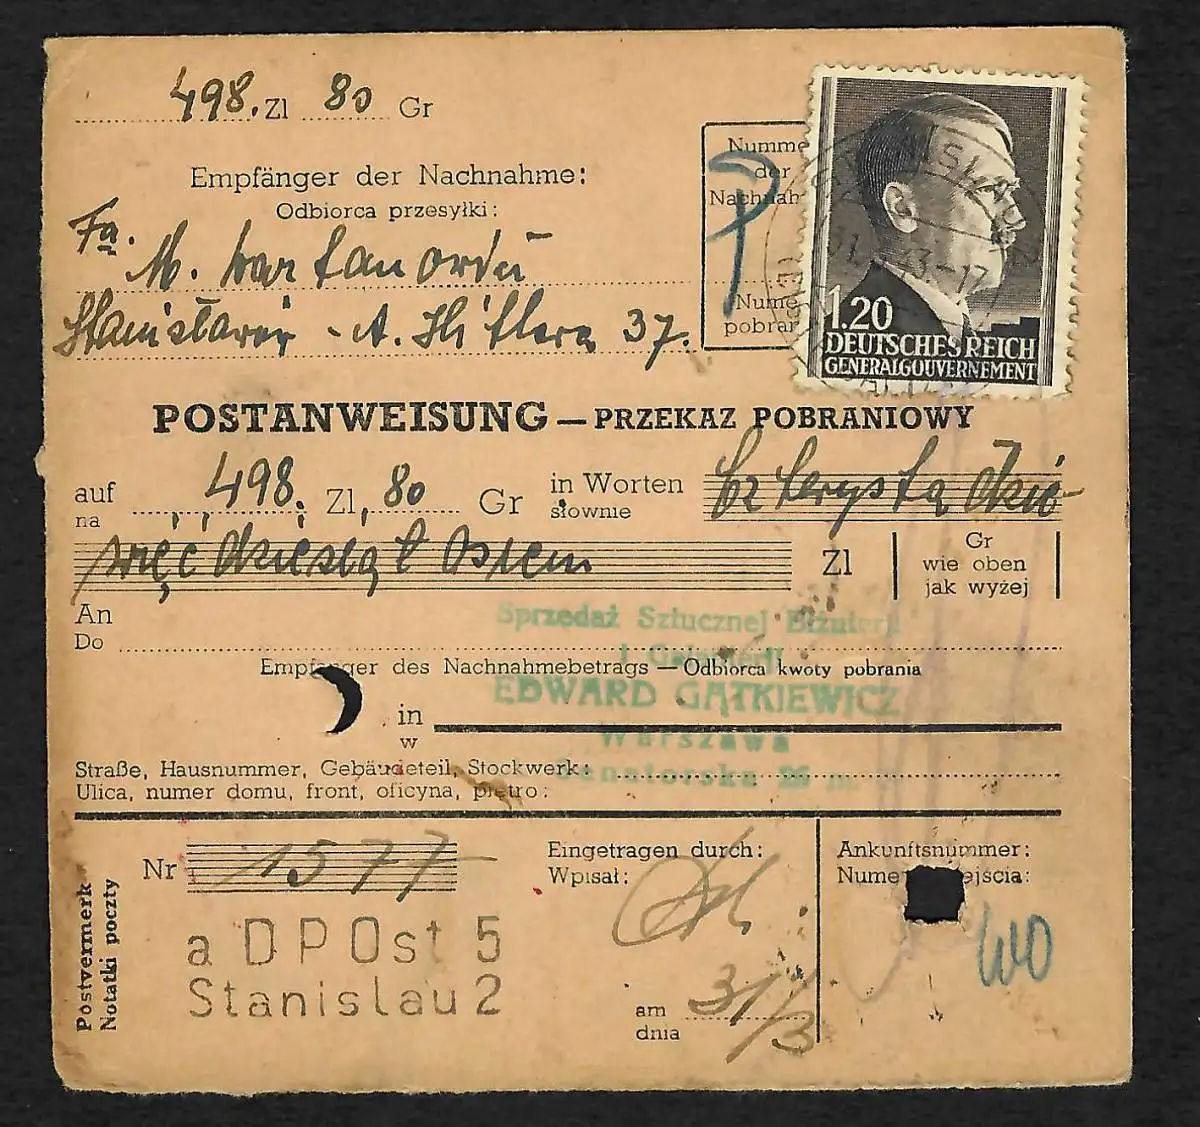 498. Zl 80 Gr
Empfänger der Nachnahme:
Odbiorca przesyłki:
Fa. M. Wartanowicz
Stanisławów - A. Hitlera 37.
Numme
der
Nachnahm
Nume
pobran
1.20
DEUTSCHES REICH
GENERALGOUVERNEMENT
POSTANWEISUNG — PRZEKAZ POBRANIOWY
auf 498. Zl, 80 Gr in Worten czterysta dzie-
na słownie
więćdziesiąt osiem Zl Gr
wie oben
jak wyżej
An
Do
Sprzedaż Sztucznej Biżuterji
i
Empfänger des Nachnahmebetrags — Odbiorca kwoty pobrania
EDWARD GĄTKIEWICZ
in
w
Warszawa
Straße, Hausnummer, Gebäudeteil, Stockwerk:
Senatorska 26 m.
Ulica, numer domu, front, oficyna, piętro:
Postvermerk
Notatki poczty
Nr 1577
Eingetragen durch:
Wpisał:
Ankunftsnummer:
Nume ejścia:
a DPOst 5
Stanislau 2
am 31/3
dnia